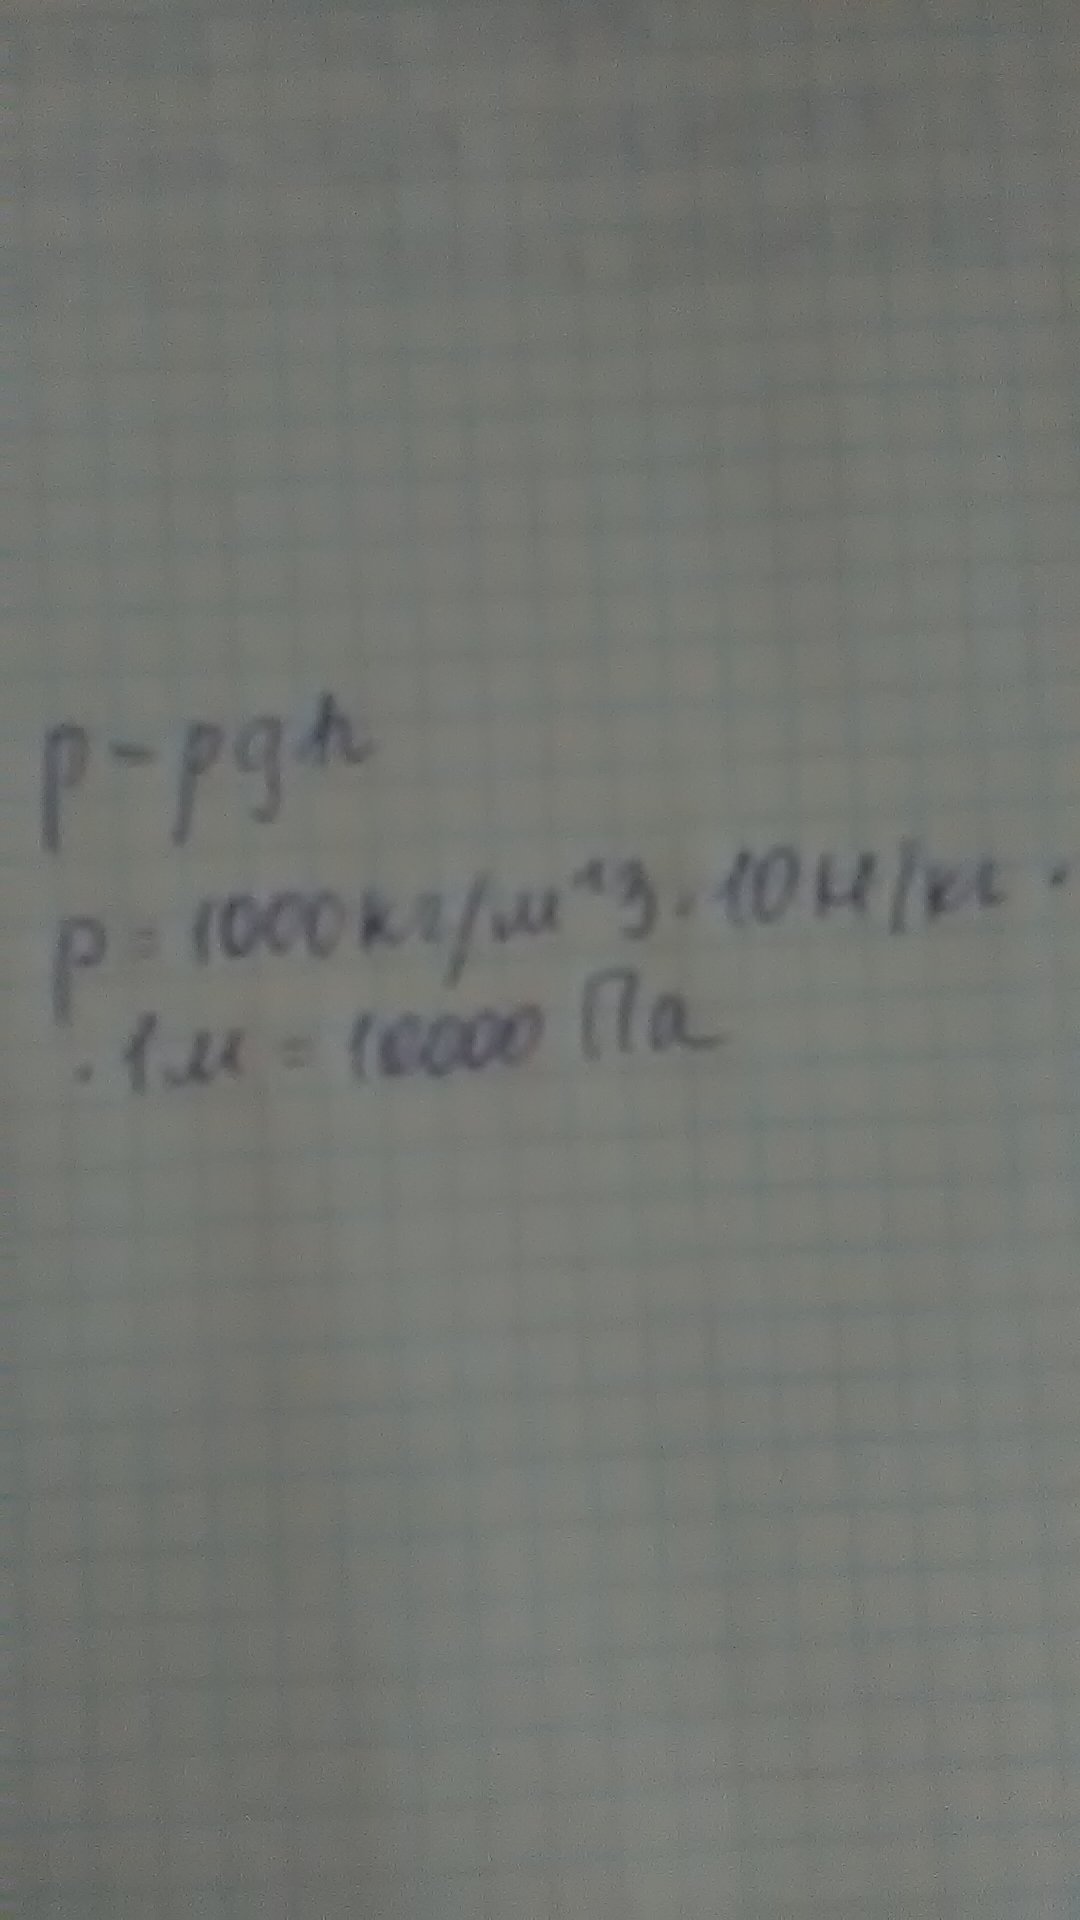 p - pgh
p = 1000 кг/м^3 · 10 Н/кг ·
· 1м = 10000 Па